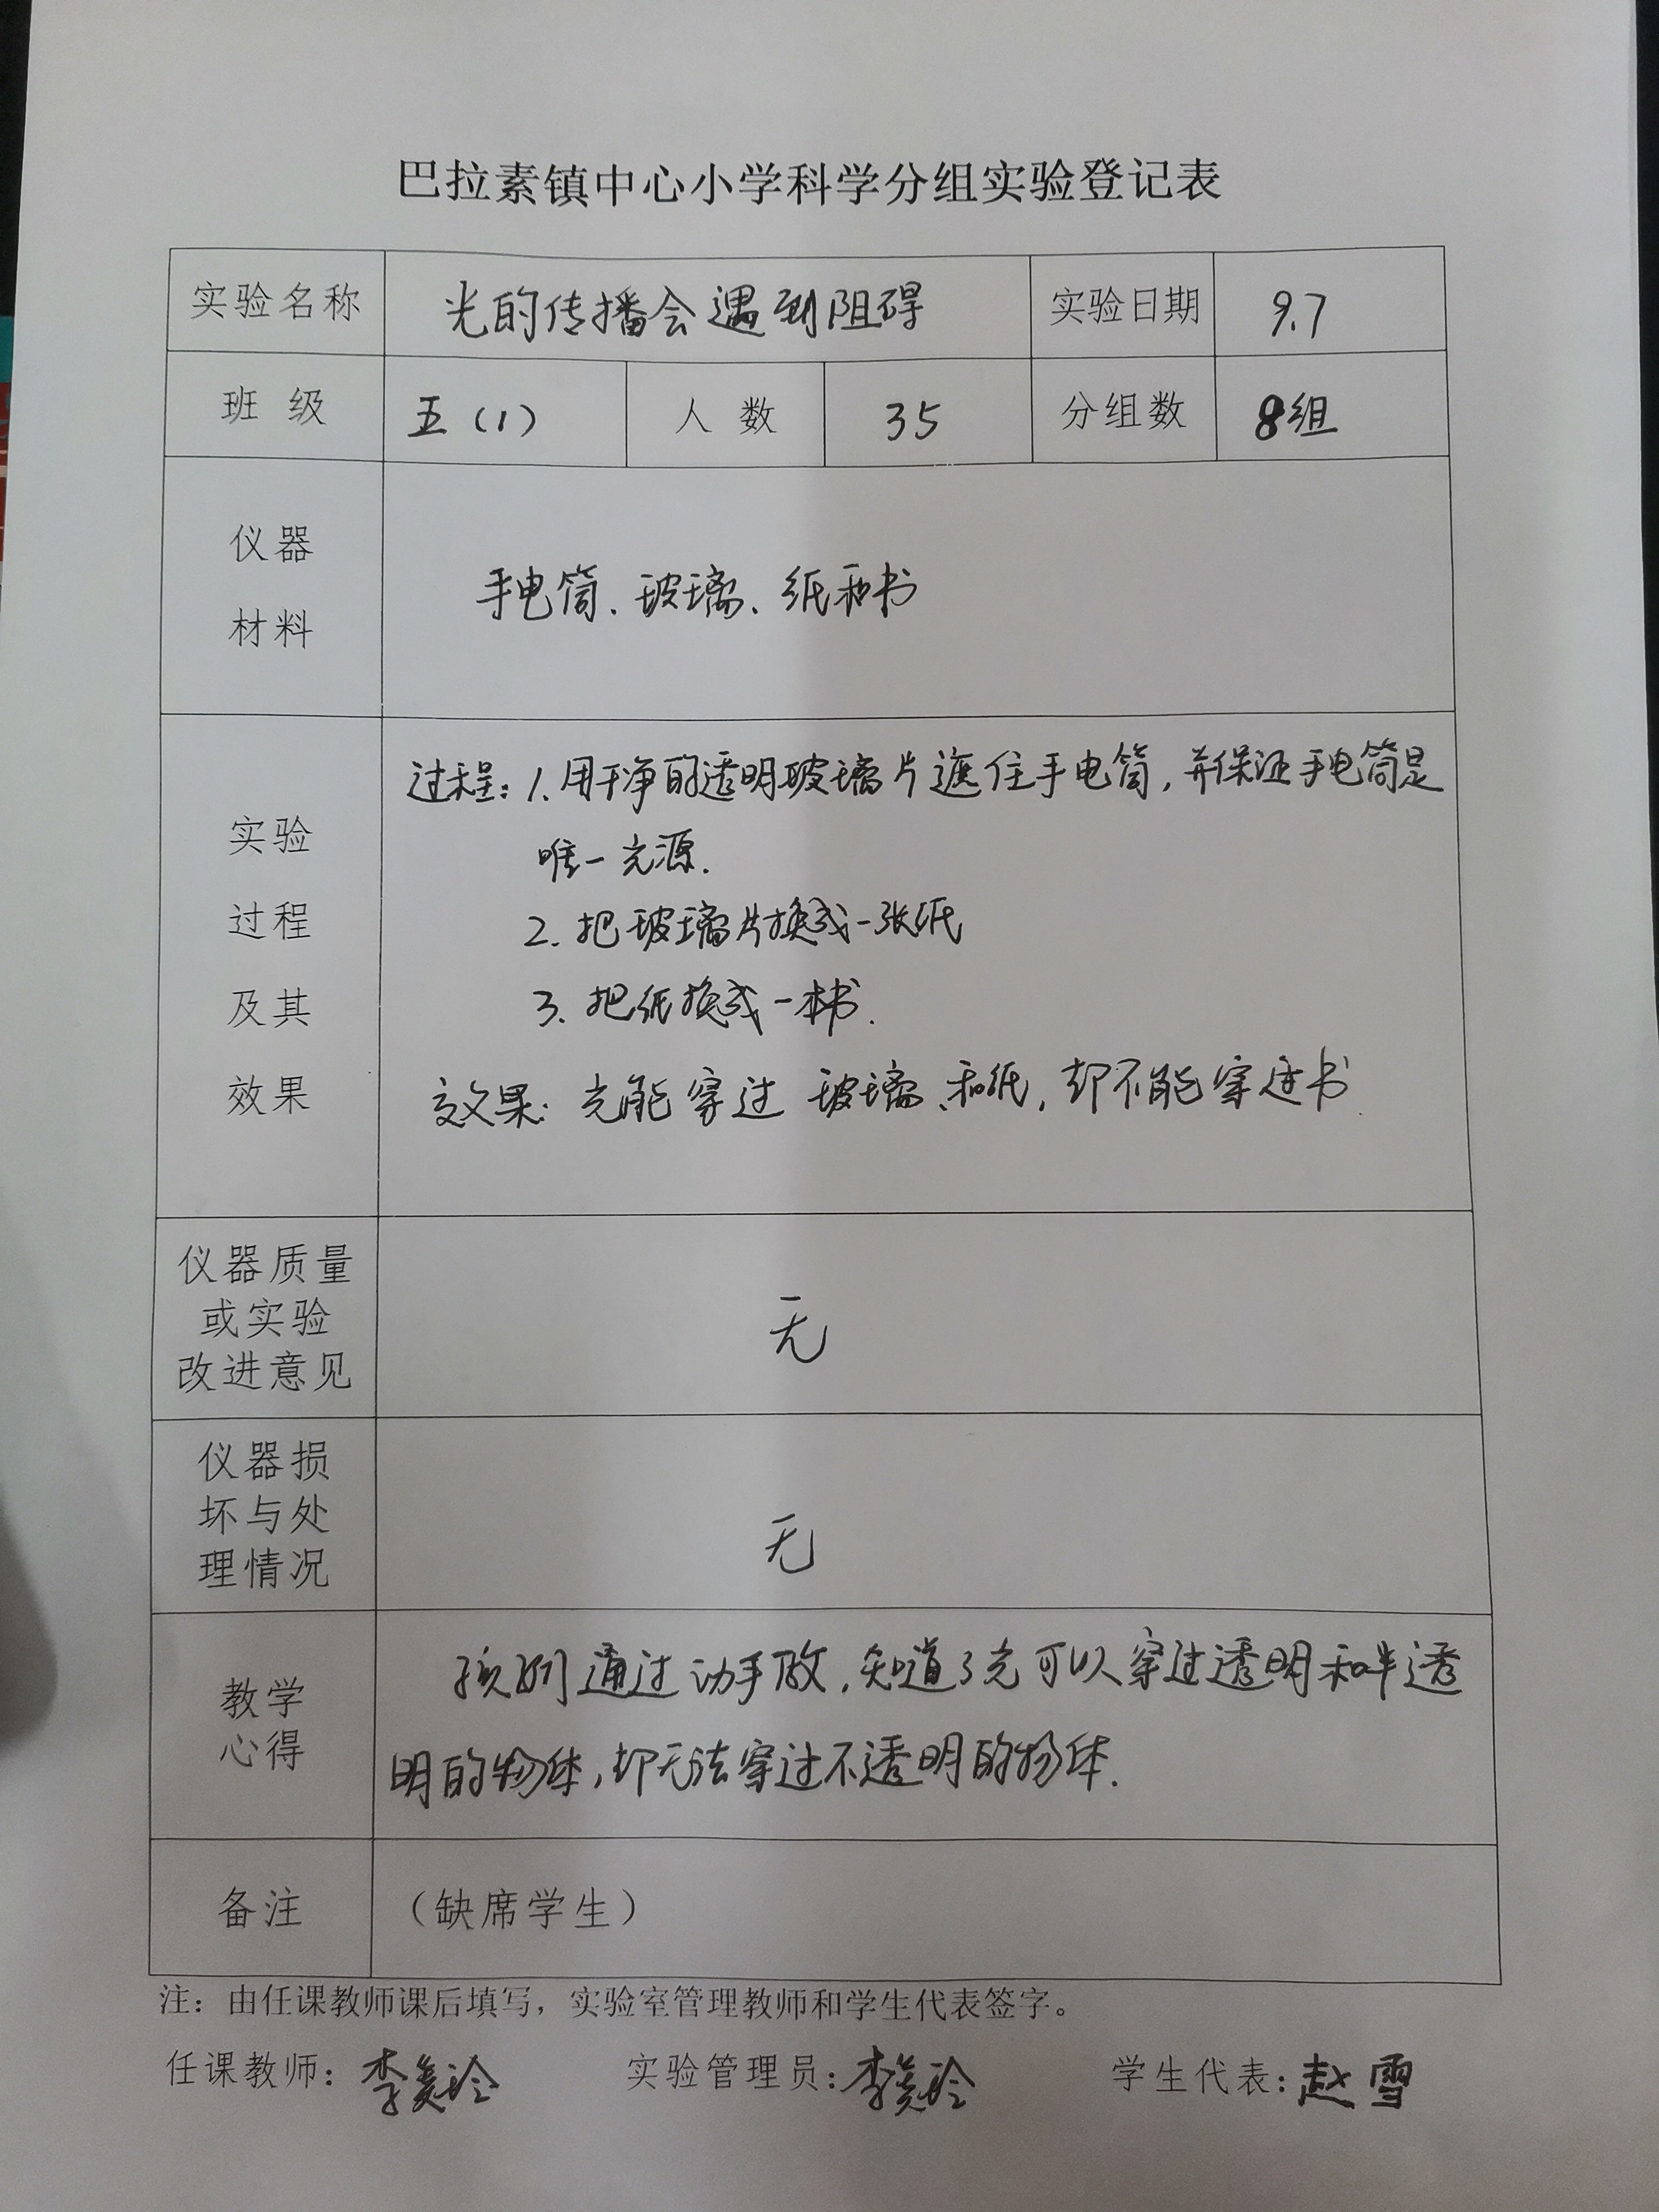 巴拉素镇中心小学科学分组实验登记表
实验名称 光的传播会遇到阻碍 实验日期 9.7
班 级 五(1) 人 数 35 分组数 8组
仪器
材料
手电筒、玻璃、纸和书
实验
过程
及其
效果
过程:1.用干净的透明玻璃片遮住手电筒,并保证手电筒是
唯一光源.
2.把玻璃片换成一张纸
3.把纸换成一本书.
效果:光能穿过 玻璃、和纸,却不能穿过书.
仪器质量
或实验
改进意见
无
仪器损
坏与处
理情况
无
教学
心得
孩子们通过动手做,知道了光可以穿过透明和半透
明的物体,却无法穿过不透明的物体.
备注 (缺席学生)
注:由任课教师课后填写,实验室管理教师和学生代表签字。
任课教师:李美玲 实验管理员:李美玲 学生代表:赵雪